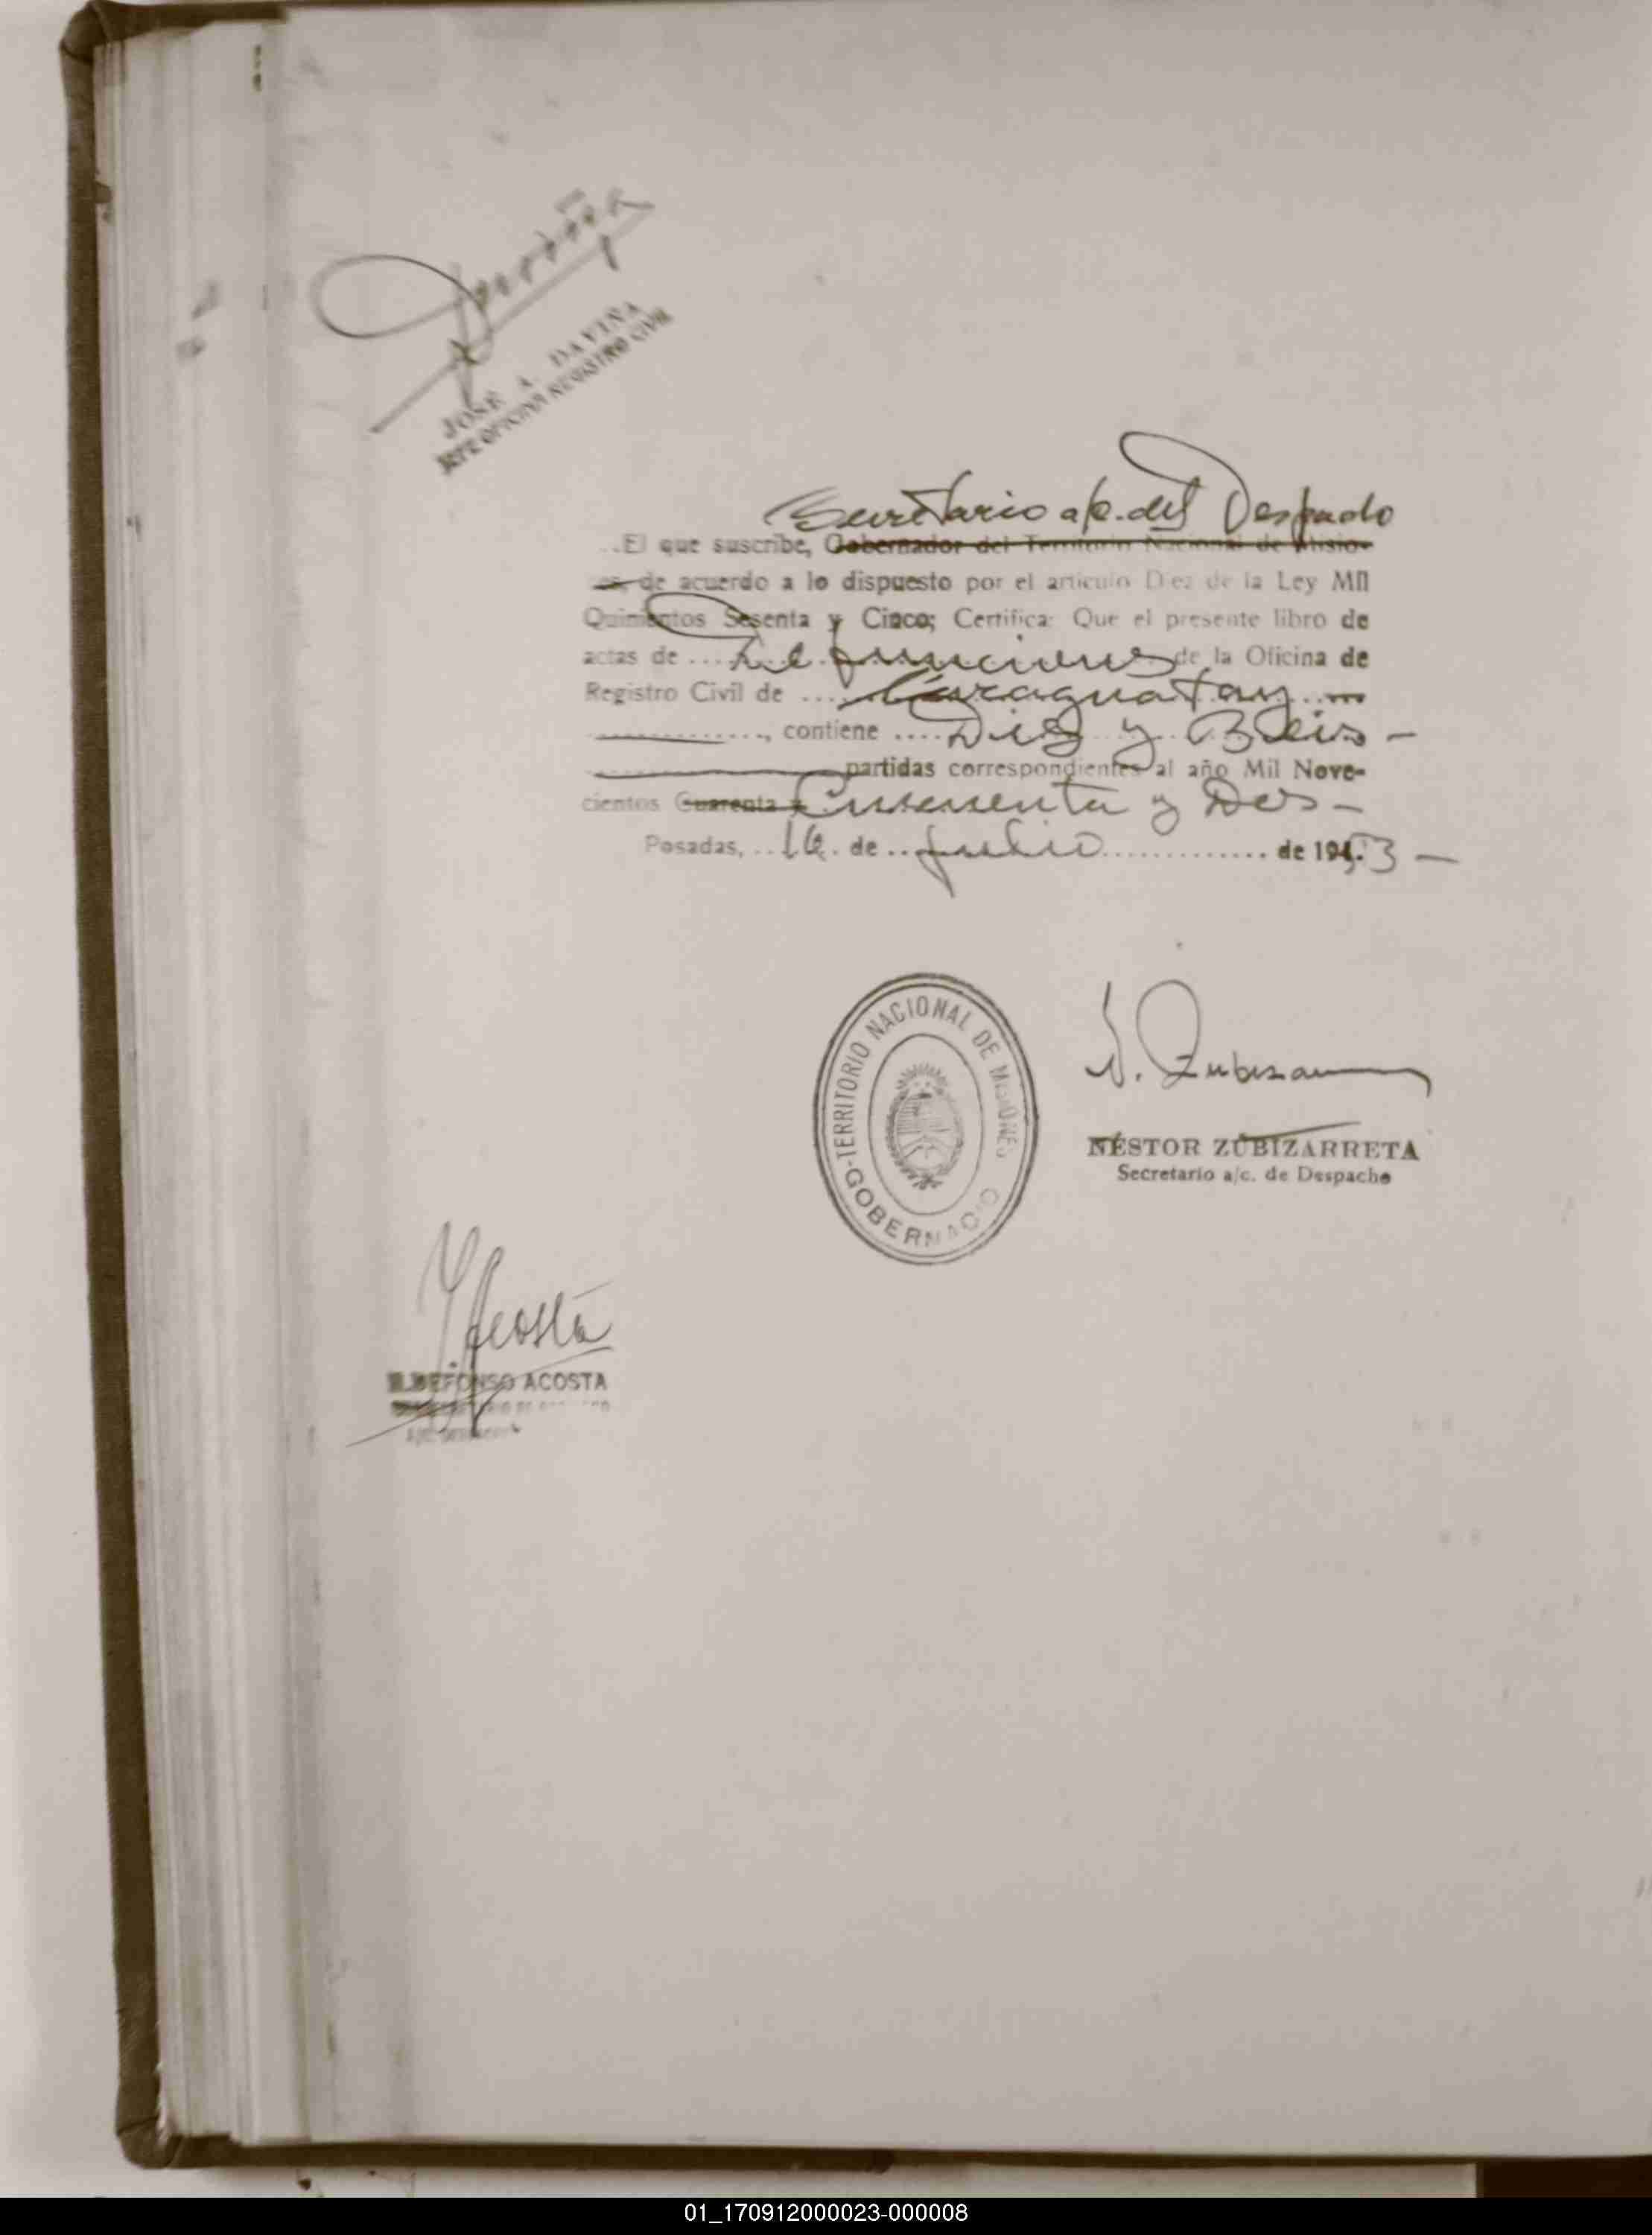 JOSE A. DAVIÑA
JEFE OFICINA REGISTRO CIVIL
Secretario a/c. del Despacho
El que suscribe, Gobernador del Territorio Nacional de Misio-
es, de acuerdo a lo dispuesto por el artículo Diez de la Ley Mil
Quinientos Sesenta y Cinco; Certifica: Que el presente libro de
actas de .... Defunciones de la Oficina de
Registro Civil de .... Caraguatay
............, contiene .... Diez y Seis -
partidas correspondientes al año Mil Nove-
cientos Cuarenta y Cincuenta y Dos -
Posadas, .. 16 . de .. Julio ............. de 1953 -
GOBERNACIO -TERRITORIO NACIONAL DE MISIONES
N. Zubizarreta
NÉSTOR ZUBIZARRETA
Secretario a/c. de Despacho
Y Acosta
ILDEFONSO ACOSTA
01_170912000023-000008